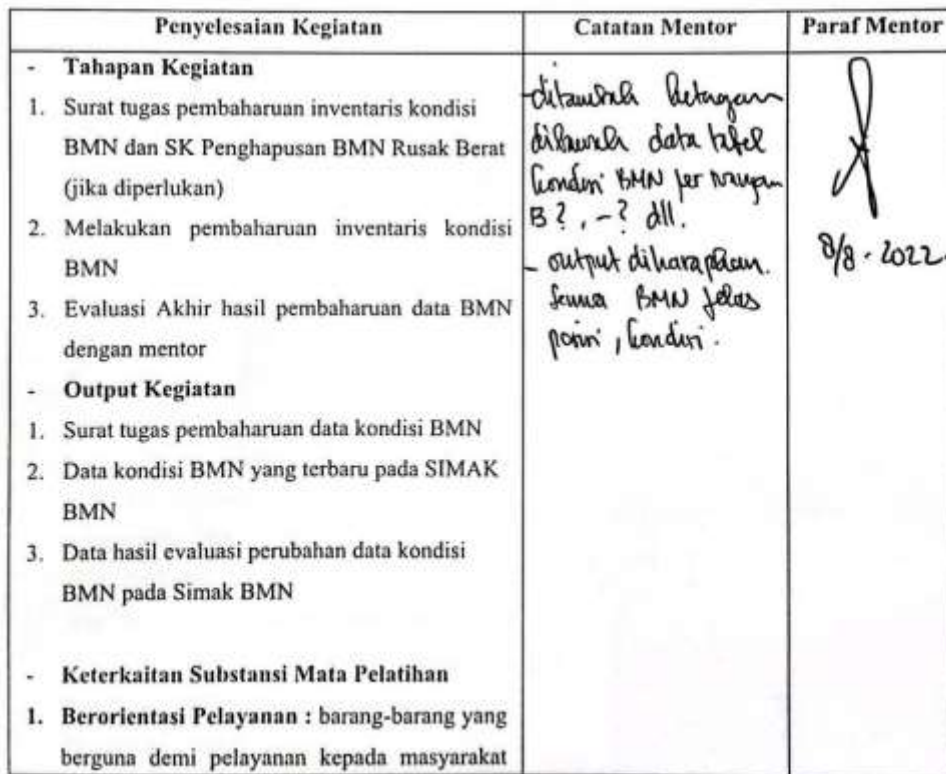 Penyelesaian Kegiatan
Catatan Mentor
Paraf Mentor
- Tahapan Kegiatan
1. Surat tugas pembaharuan inventaris kondisi
BMN dan SK Penghapusan BMN Rusak Berat
(jika diperlukan)
2. Melakukan pembaharuan inventaris kondisi
BMN
3. Evaluasi Akhir hasil pembaharuan data BMN
dengan mentor
- Output Kegiatan
1. Surat tugas pembaharuan data kondisi BMN
2. Data kondisi BMN yang terbaru pada SIMAK
BMN
3. Data hasil evaluasi perubahan data kondisi
BMN pada Simak BMN
- Keterkaitan Substansi Mata Pelatihan
1. Berorientasi Pelayanan : barang-barang yang
berguna demi pelayanan kepada masyarakat
- ditambah
dibawah data tabel
kondisi BMN per ruangan
B?, -? dll.
- output diharapkan.
semua BMN jelas
posisi, kondisi.
8/8-2022.